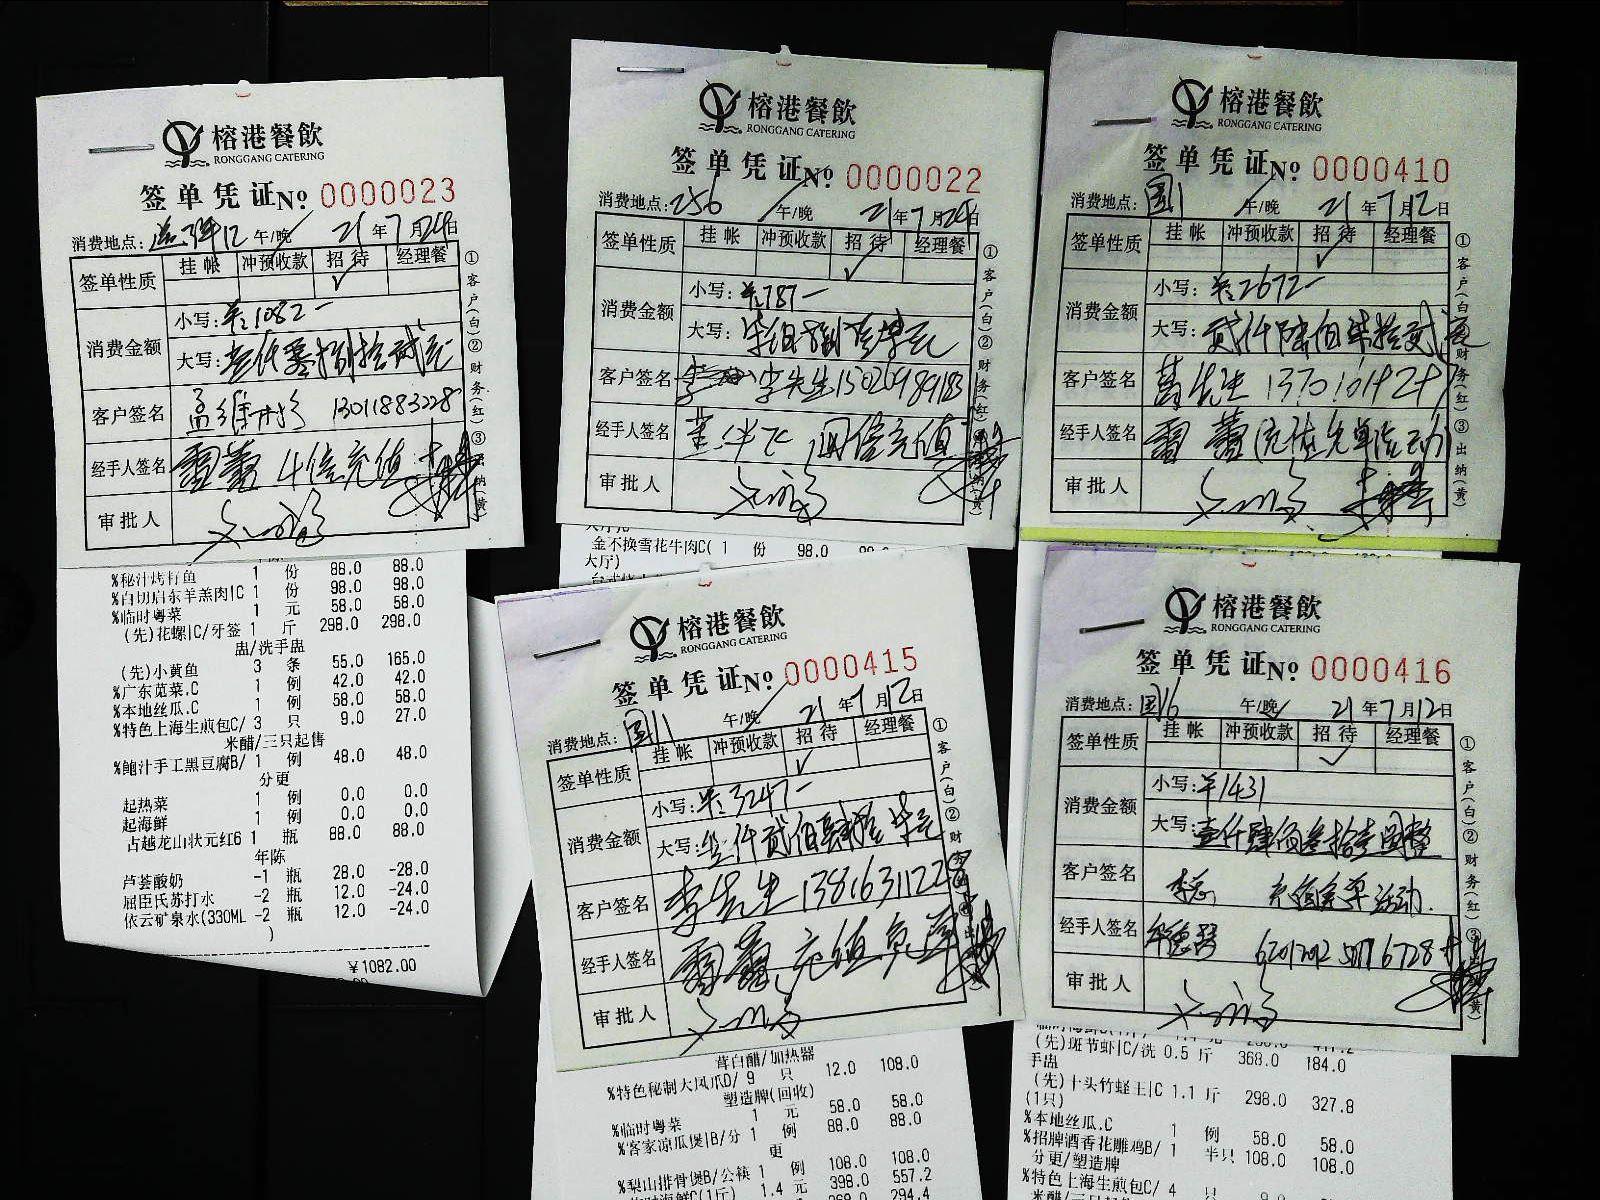 榕港餐飲
RONGGANG CATERING
签单凭证 No 0000023
消费地点: 午/晚 21年7月24日
签单性质 挂帐 冲预收款 招待 经理餐
✓
消费金额
小写: 1082-
大写: 壹仟零捌拾贰元
客户签名 13011883228
经手人签名 雷蕾 4倍充值
审批人
①客户(白)②财务(红)③出纳(黄)
%秘汁烤籽鱼 1 份 88.0 88.0
%白切启东羊羔肉|C 1 份 98.0 98.0
%临时粤菜 1 元 58.0 58.0
(先)花螺|C/牙签 1 斤 298.0 298.0
盅/洗手盅
(先)小黄鱼 3 条 55.0 165.0
%广东苋菜.C 1 例 42.0 42.0
%本地丝瓜.C 1 例 58.0 58.0
%特色上海生煎包C/ 3 只 9.0 27.0
米醋/三只起售
%鲍汁手工黑豆腐B/ 1 例 48.0 48.0
分更
起热菜 1 例 0.0 0.0
起海鲜 1 例 0.0 0.0
古越龙山状元红6 1 瓶 88.0 88.0
年陈
芦荟酸奶 -1 瓶 28.0 -28.0
屈臣氏苏打水 -2 瓶 12.0 -24.0
依云矿泉水(330ML -2 瓶 12.0 -24.0
)
¥1082.00
榕港餐飲
RONGGANG CATERING
签单凭证 No 0000022
消费地点: 256 午/晚 21年7月24日
签单性质 挂帐 冲预收款 招待 经理餐
✓
消费金额
小写: 787-
大写: 柒佰捌拾柒元
客户签名 李先生
经手人签名 四倍充值
审批人
①客户(白)②财务(红)
金不换雪花牛肉C( 1 份 98.0
大厅)
榕港餐飲
RONGGANG CATERING
签单凭证 No 0000410
消费地点: 国1 午/晚 21年7月12日
签单性质 挂帐 冲预收款 招待 经理餐
✓
消费金额
小写: 2672-
大写: 贰仟陆佰柒拾贰元
客户签名
经手人签名 雷蕾 (充值免单活动)
审批人
①客户(白)②财务(红)③出纳(黄)
榕港餐飲
RONGGANG CATERING
签单凭证 No 0000415
消费地点: 国11 午/晚 21年7月12日
签单性质 挂帐 冲预收款 招待 经理餐
✓
消费金额
小写: 3247-
大写: 叁仟贰佰肆拾柒元
客户签名 李先生 13816311228
经手人签名 雷蕾 充值免单
审批人
①客户(白)②财
茸白醋/加热器
%特色秘制大凤爪D/ 9 只 12.0 108.0
塑造牌(回收)
%临时粤菜 1 元 58.0 58.0
%客家凉瓜煲|B/分 1 例 88.0 88.0
更
%梨山排骨煲B/公筷 1 例 108.0 108.0
1.4 元 398.0 557.2
294.4
榕港餐飲
RONGGANG CATERING
签单凭证 No 0000416
消费地点: 国16 午/晚 21年7月12日
签单性质 挂帐 冲预收款 招待 经理餐
✓
消费金额
小写: 1431
大写: 壹仟肆佰叁拾壹圆整
客户签名 充值免单活动.
经手人签名
审批人
①客户(白)②财务(红)③
(先)斑节虾|C/洗 0.5 斤 368.0 184.0
手盅
(先)十头竹蛏王|C 1.1 斤 298.0 327.8
(1只)
%本地丝瓜.C 1 例 58.0 58.0
%招牌酒香花雕鸡B/ 1 半只 108.0 108.0
分更/塑造牌
%特色上海生煎包C/ 4 只